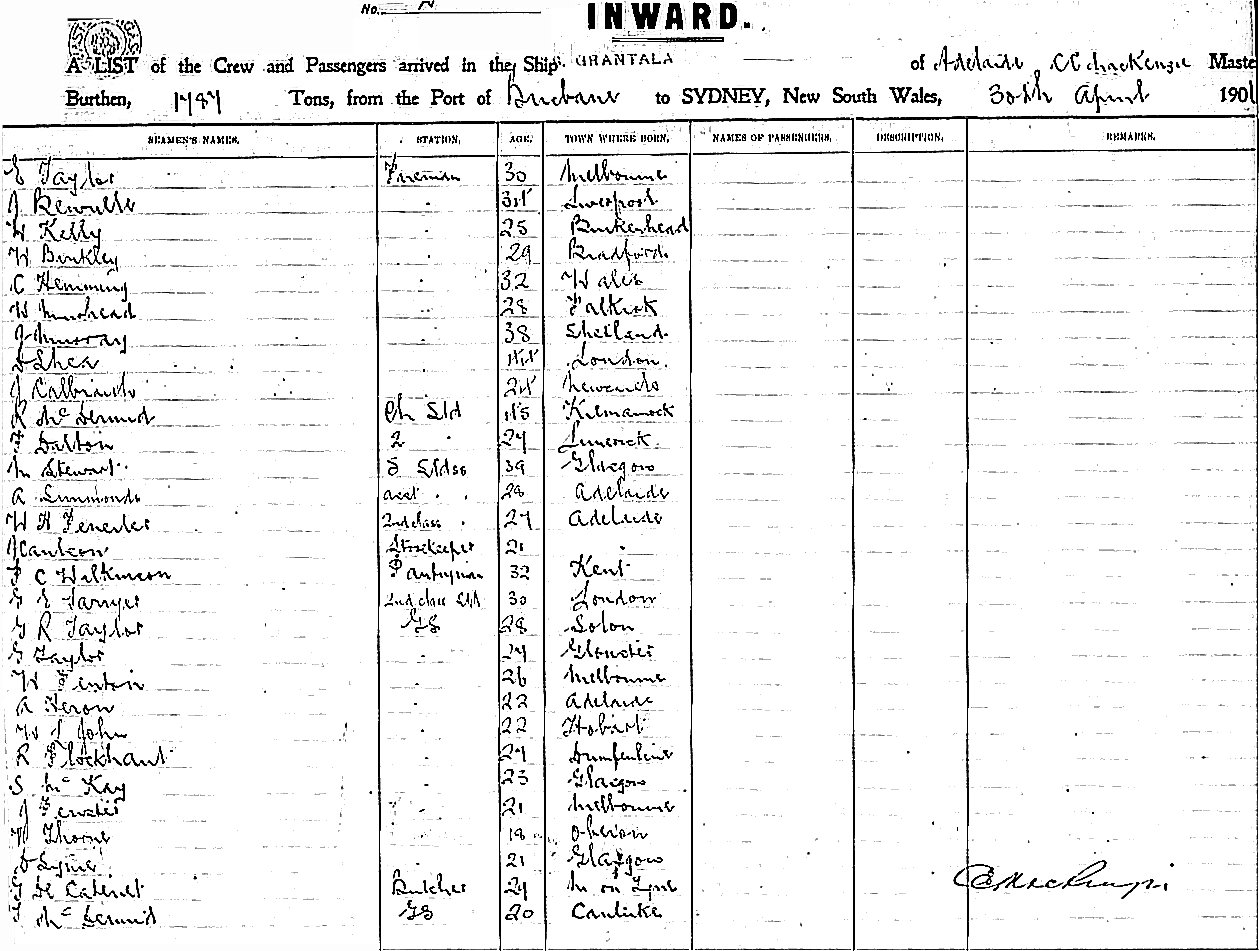 No.
INWARD.
A LIST of the Crew and Passengers arrived in the Ship GRANTALA of Adelaide CC MacKenzie Maste
Burthen, 1787 Tons, from the Port of Brisbane to SYDNEY, New South Wales, 30th April 1901
SEAMEN'S NAMES. STATION. AGE. TOWN WHERE BORN. NAMES OF PASSENGERS. DESCRIPTION. REMARKS.
E Taylor Fireman 30 Melbourne
J 34 Liverpool
W Kelly " 25 Birkenhead
W Binkley " 29 Bradford
C Hemming " 32 Wales
W Muirhead " 28 Falkirk
J Murray " 38 Shetland
D Shea " 44 London
J 24
R McDermid Ch Std 45 Kilmarnock
F Dalton 2 " 27 Limerick
M Stewart S Stdss 39 Glasgow
A Simmonds asst " " 28 Adelaide
W H 2nd class " 27 Adelaide
J Storekeeper 21 "
C Wilkinson Pantryman 32 Kent
G E 2nd class Std 30 London
G R Taylor GS 28
G Taylor " 27 Gloucster
W Fenton " 26 Melbourne
A Heron " 22 Adelaide
W S John " 22 Hobart
R Flockhart " 27
S McKay " 23 Glasgow
J " 21 Melbourne
W Thorne " 18 Oberon
D Lyne " 21 Glasgow
Butcher 27 N on Tyne CC MacKenzie
McDermid GS 20